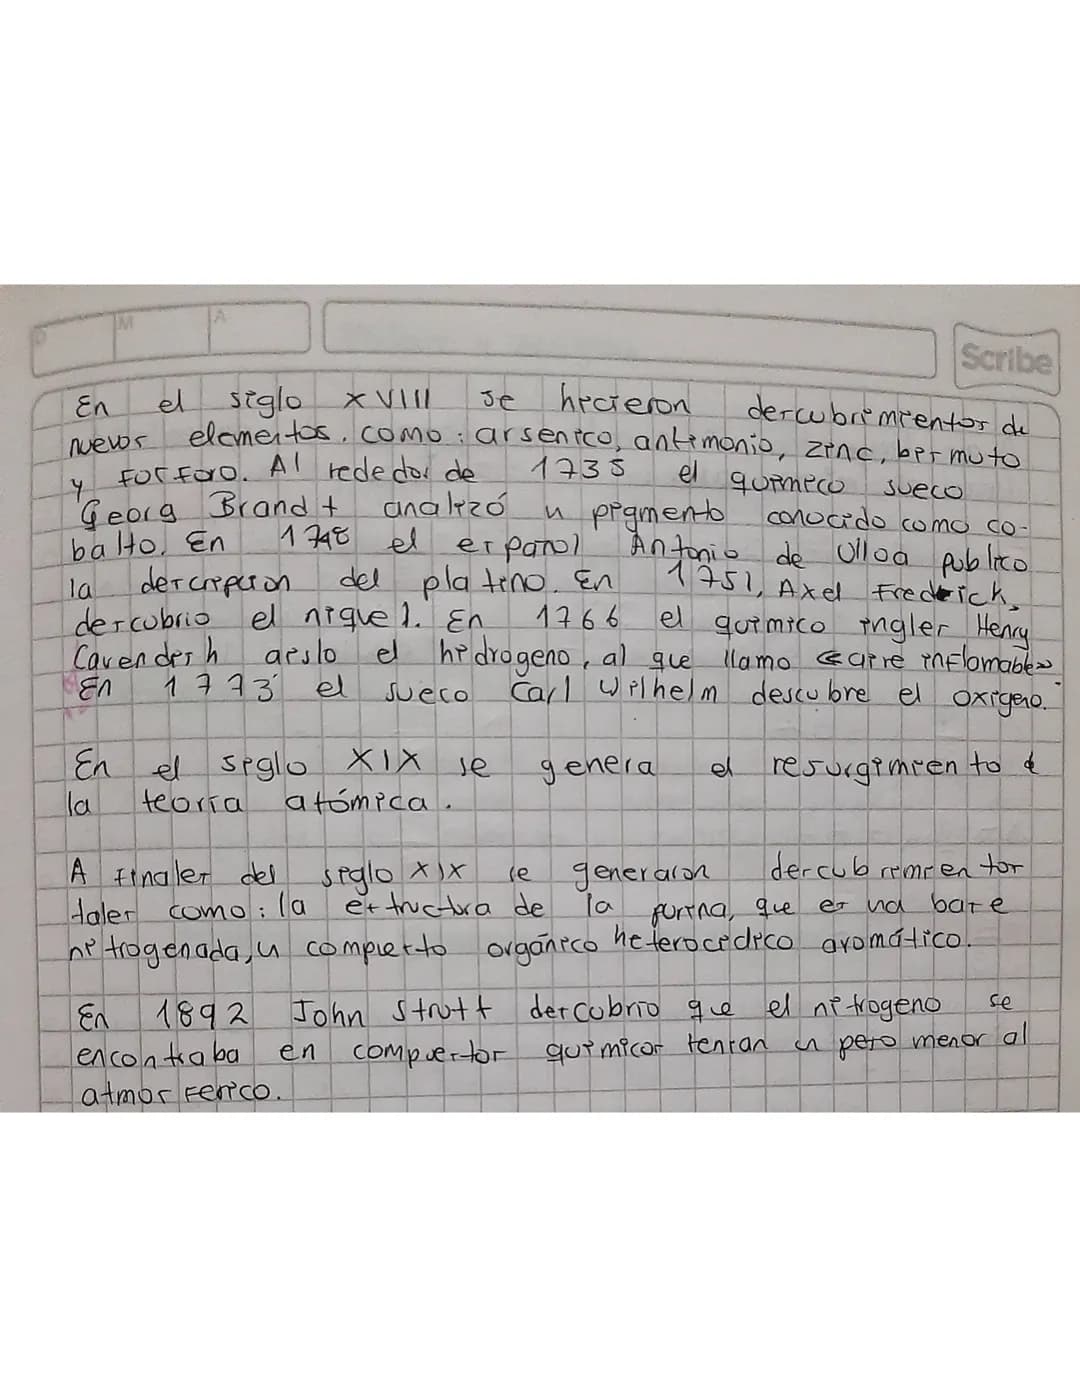 D M A
Scribe
En el siglo XVIII se hicieron descubrimientos de
nuevos elementos. como: arsenico, antimonio, zinc, bismuto
y fosforo. Al rededor de 1735 el quimico sueco
Georg Brandt analizó un pigmento conocido como co-
balto. En 1748 el español Antonio de Ulloa publico
la descripcion del platino. En 1751, Axel Fredrick,
descubrio el niquel. En 1766 el quimico ingles Henry
Cavendish aislo el hidrogeno, al que llamo «aire inflamable»
En 1773 el sueco Carl Wilhelm descubre el oxigeno.
En el siglo XIX se genera el resurgimiento de
la teoria atómica.
A finales del siglo XIX se generaron descubrimientos
tales como: la estructura de la purina, que es una base
nitrogenada, un compuesto orgánico heterociclico aromático.
En 1892 John Strutt descubrio que el nitrogeno se
encontraba en compuestos quimicos tenian un peso menor al
atmosferico.